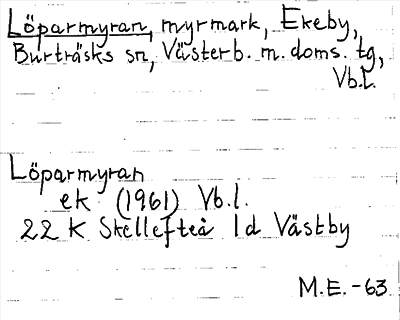 Löparmyran, myrmark, Ekeby,
Burträsks sn, Västerb. m. doms. tg,
Vb.l.
Löparmyran
ek (1961) Vb.l.
22 K Skellefteå 1d Västby
M.E. -63